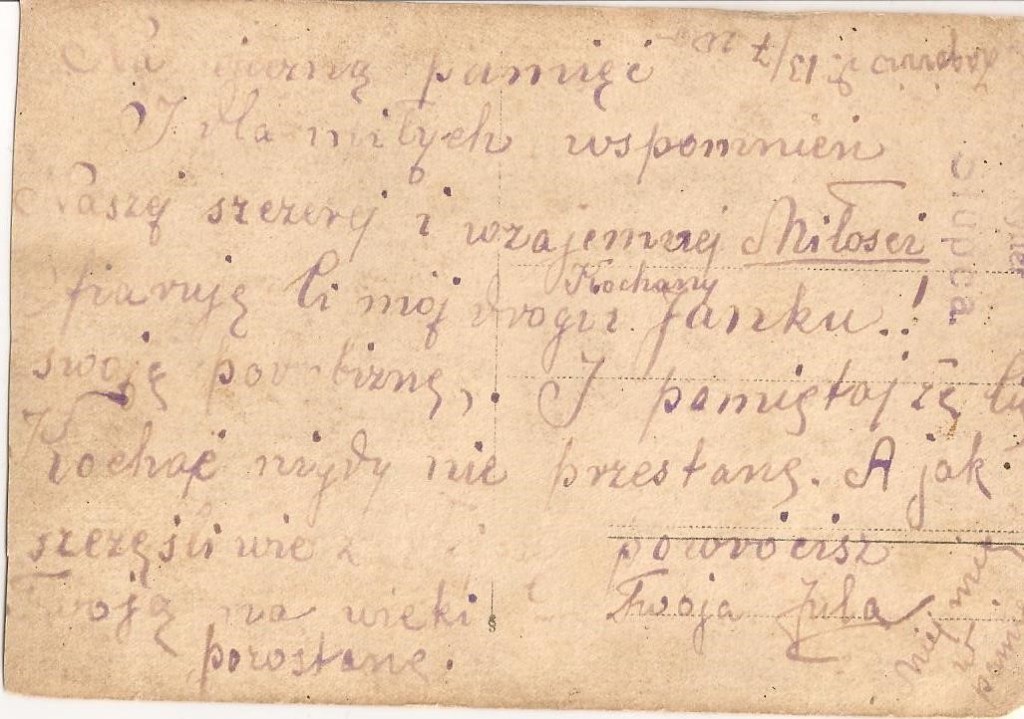 Na wierną pamięć
I dla miłych wspomnień
Naszej szczerej i wzajemnej Miłości
fiaruję Ci mój drogi Kochany Janku..!
swoję podobiznę,. I pamiętaj żę Ci
Kochać nigdy nie przestanę. A jak
szczęśliwie powrócisz
Twoją na wieki Twoja Jula
pozostanę.
Miej mię
w
pamię
13/7
Słupca.